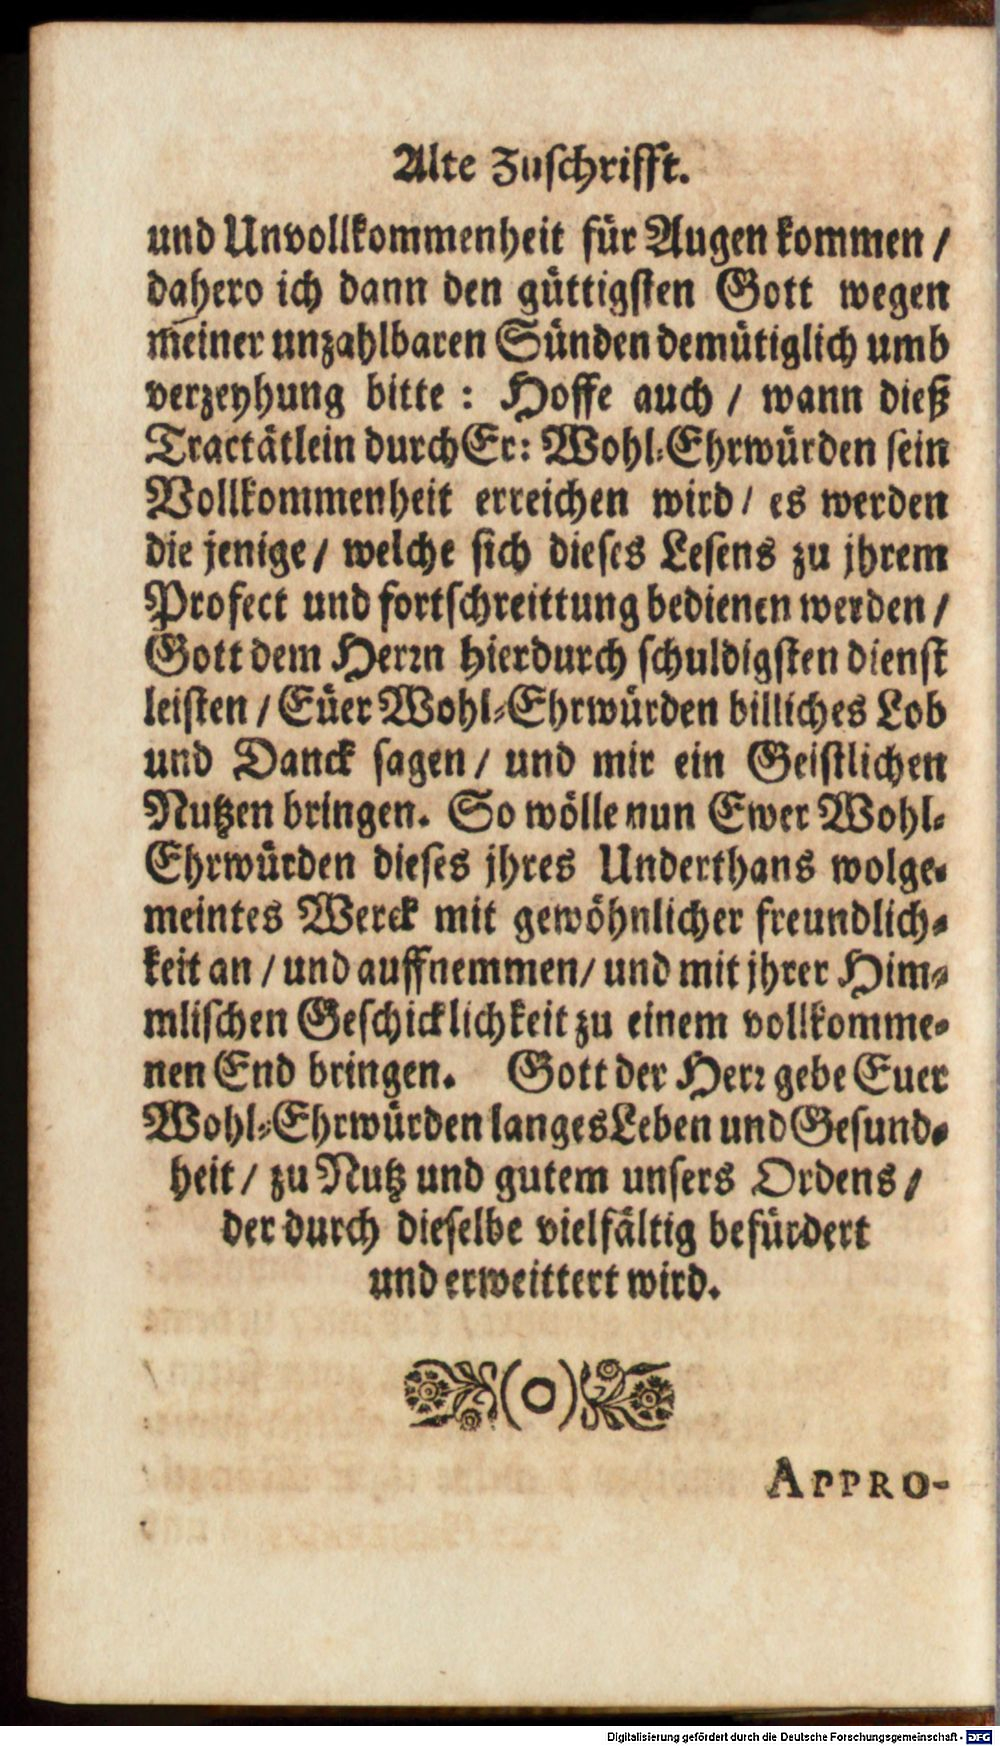 Alte Zuschrifft.
und Unvollkommenheit für Augen kommen /
dahero ich dann den güttigsten Gott wegen
meiner unzahlbaren Sünden demütiglich umb
verzeyhung bitte : Hoffe auch / wann dieß
Tractätlein durch Er: Wohl-Ehrwürden sein
Vollkommenheit erreichen wird / es werden
die jenige / welche sich dieses Lesens zu jhrem
Profect und fortschreittung bedienen werden /
Gott dem Herrn hierdurch schuldigsten dienst
leisten / Eüer Wohl-Ehrwürden billiches Lob
und Danck sagen / und mir ein Geistlichen
Nutzen bringen. So wölle nun Ewer Wohl-
Ehrwürden dieses jhres Underthans wolge-
meintes Werck mit gewöhnlicher freundlich-
keit an / und auffnemmen / und mit jhrer Him-
mlischen Geschicklichkeit zu einem vollkomme-
nen End bringen. Gott der Herr gebe Euer
Wohl-Ehrwürden langes Leben und Gesund-
heit / zu Nutz und gutem unsers Ordens /
der durch dieselbe vielfältig befürdert
und erweittert wird.
(O)
APPRO-
Digitalisierung gefördert durch die Deutsche Forschungsgemeinschaft - DFG